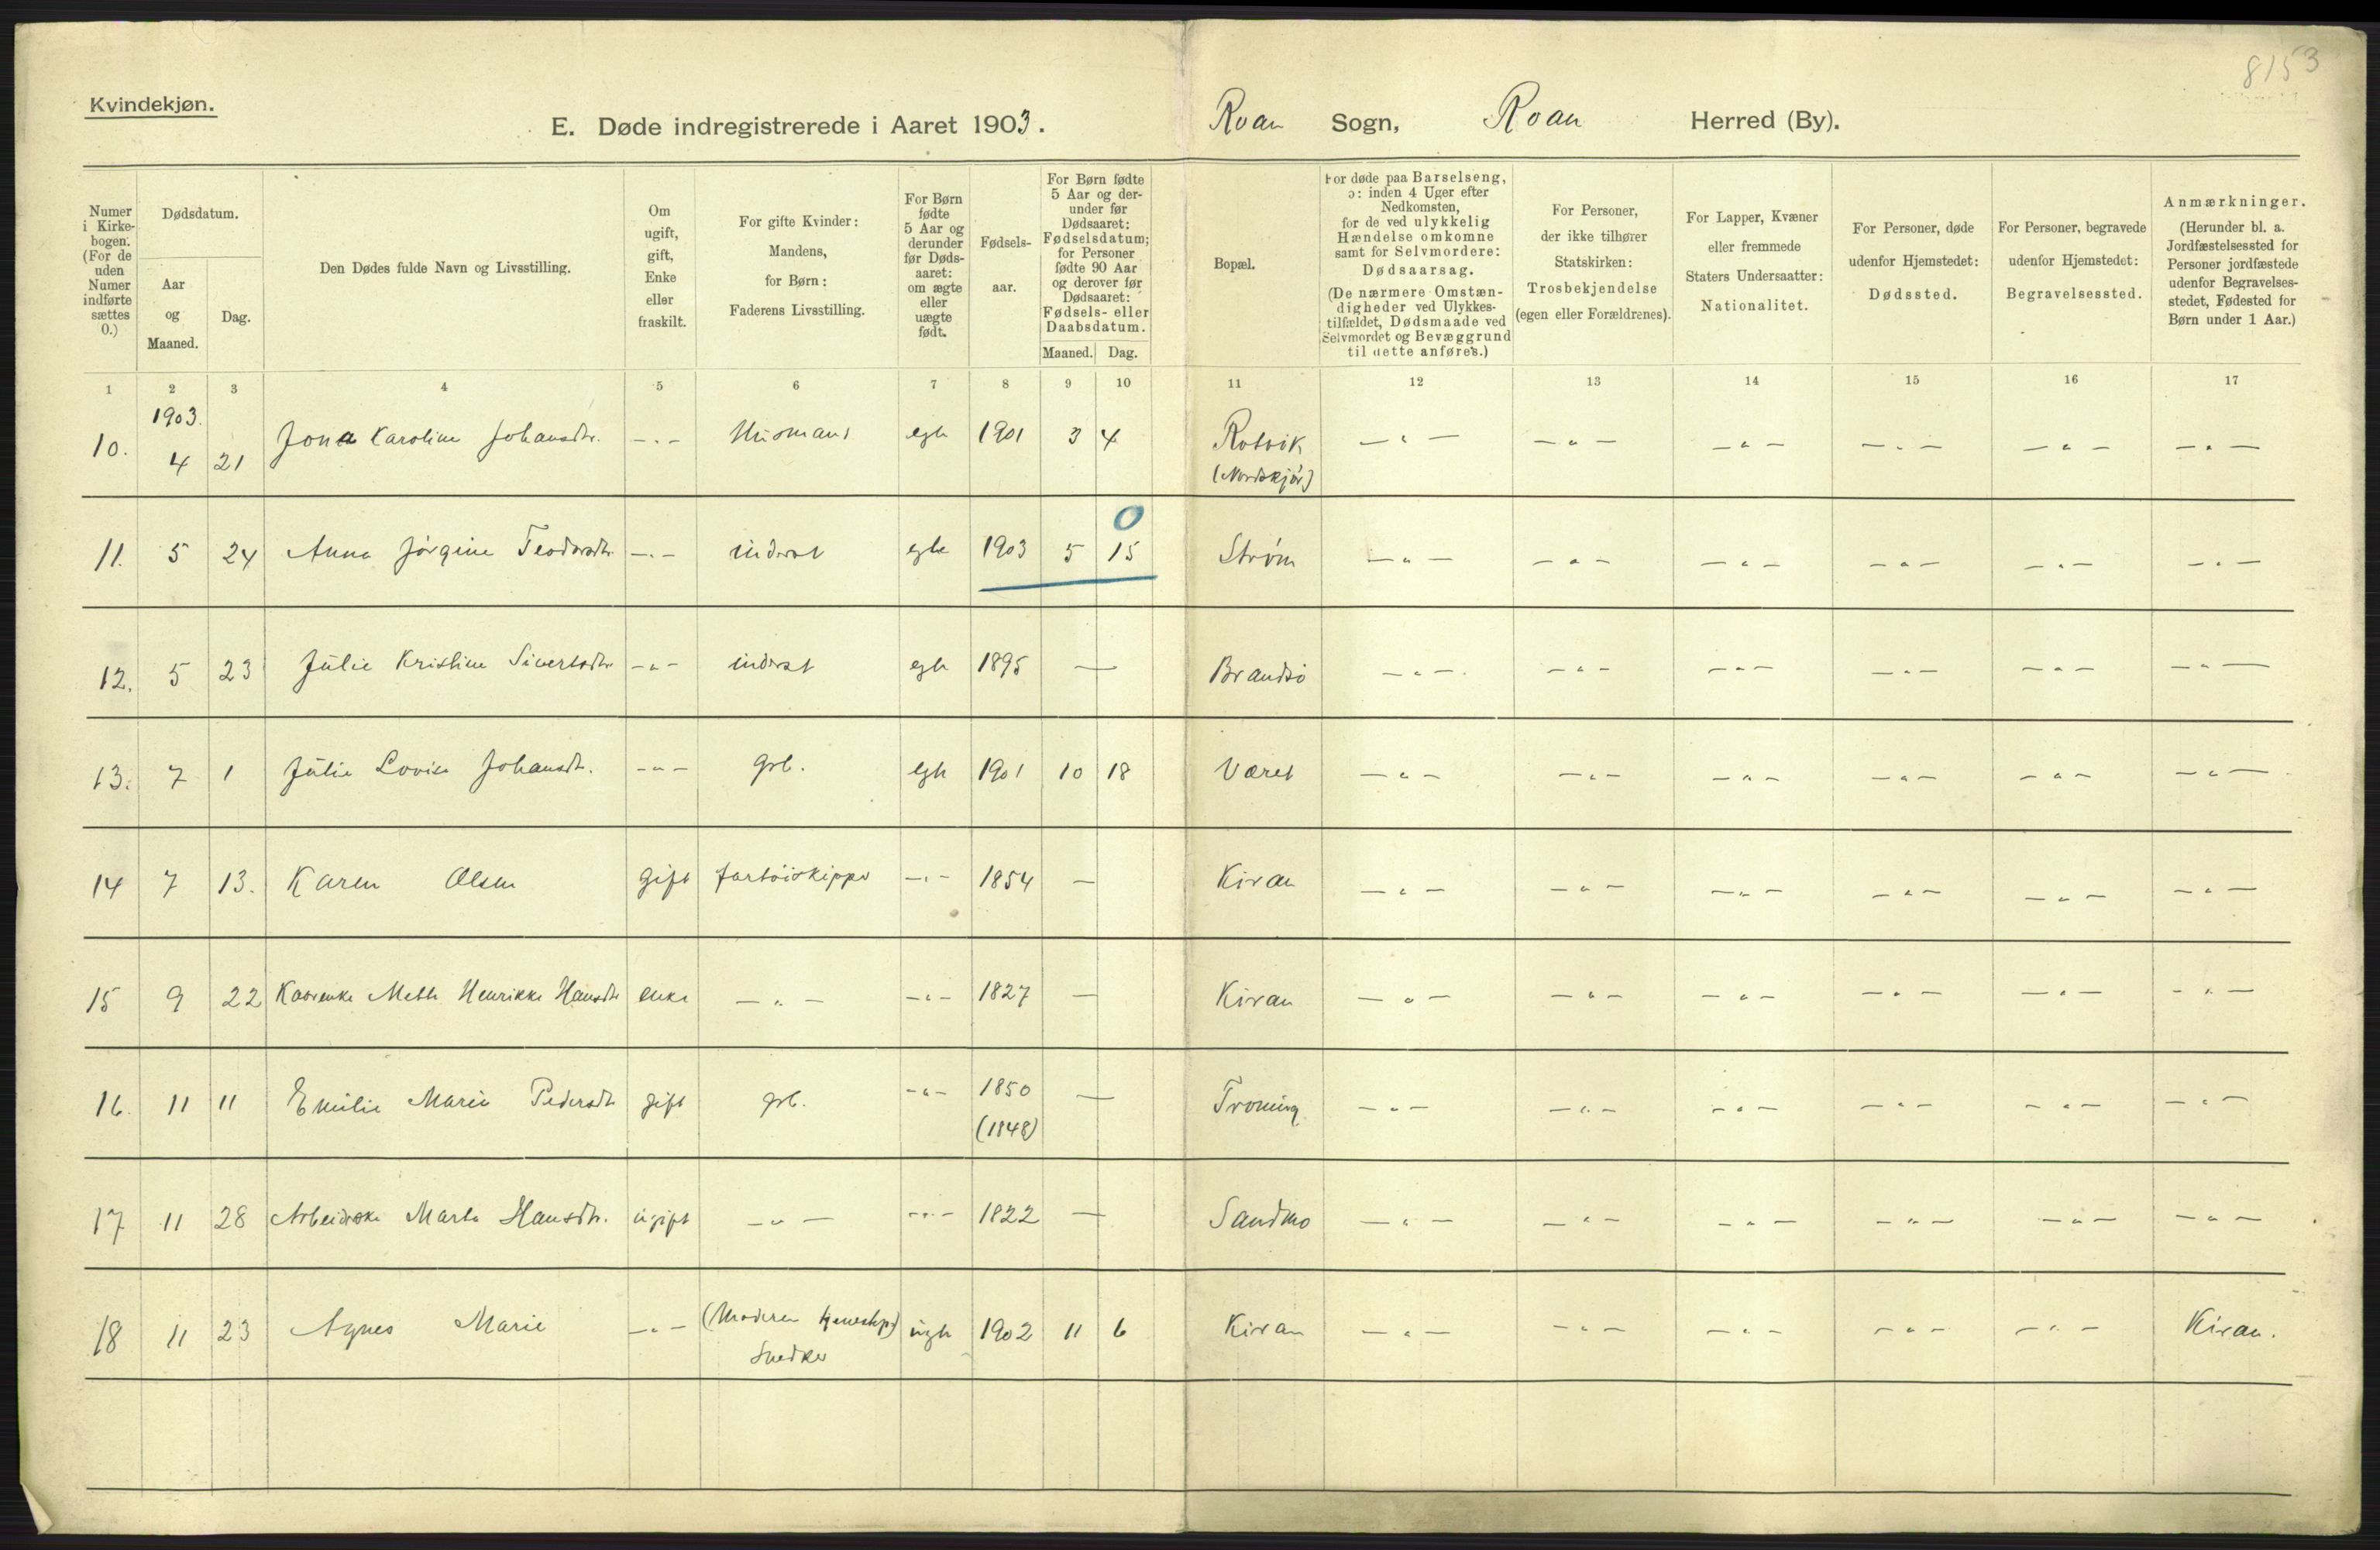 8153
Kvindekjøn.
E. Døde indregistrerede i Aaret 1903. Roan Sogn, Roan Herred (By).
Numer i Kirke-bogen. (For de uden Numer indførte sættes 0.)
Dødsdatum.
Aar og Maaned.
Dag.
Den Dødes fulde Navn og Livsstilling.
Om ugift, gift, Enke eller fraskilt.
For gifte Kvinder: Mandens, for Børn: Faderens Livsstilling.
For Børn fødte 5 Aar og derunder før Døds-aaret: om ægte eller uægte født.
Fødsels-aar.
For Børn fødte 5 Aar og der-under før Dødsaaret: Fødselsdatum; for Personer fødte 90 Aar og derover før Dødsaaret: Fødsels- eller Daabsdatum.
Maaned. Dag.
Bopæl.
For døde paa Barselseng, ɔ: inden 4 Uger efter Nedkomsten, for de ved ulykkelig Hændelse omkomne samt for Selvmordere: Dødsaarsag. (De nærmere Omstæn-digheder ved Ulykkes-tilfældet, Dødsmaade ved Selvmordet og Bevæggrund til dette anføres.)
For Personer, der ikke tilhører Statskirken: Trosbekjendelse (egen eller Forældrenes).
For Lapper, Kvæner eller fremmede Staters Undersaatter: Nationalitet.
For Personer, døde udenfor Hjemstedet: Dødssted.
For Personer, begravede udenfor Hjemstedet: Begravelsessted.
Anmærkninger. (Herunder bl. a. Jordfæstelsessted for Personer jordfæstede udenfor Begravelses-stedet, Fødested for Børn under 1 Aar.)
1 2 3 4 5 6 7 8 9 10 11 12 13 14 15 16 17
1903.
10. 4 21 Jona Karoline Johansdtr. -"- Husmand egte 1901 3 4 Rotvik -"- -"- -"- -"- -"- -"-
(Nordskjør)
0
11. 5 24 Anna Jørgine Teodorsdtr -"- inderst egte 1903 5 15 Strøm -"- -"- -"- -"- -"- -"-
12. 5 23 Julie Kristine Sivertsdtr -"- inderst egte 1895 — Brandsø -"- -"- -"- -"- -"- -"-
13. 7 1 Julie Lovise Johansdtr. -"- grb. egte 1901 10 18 Været -"- -"- -"- -"- -"- -"-
14 7 13. Karen Olsen gift fartøiskipper -"- 1854 — Kiran -"- -"- -"- -"- -"- -"-
15 9 22 Mette Henrikke Hansdtr enke -"- -"- 1827 — Kiran -"- -"- -"- -"- -"- -"-
16. 11 11 Emilie Marie Pedersdtr gift grb. -"- 1850 — Troning -"- -"- -"- -"- -"- -"-
(1848)
17 11 28 Arbeiderske Marta Hansdtr. ugift -"- -"- 1822 — Sandmo -"- -"- -"- -"- -"- -"-
18 11 23 Agnes Marie -"- (Moderen tjenestepi) uegte 1902 11 6 Kiran -"- -"- -"- -"- -"- Kiran.
Snedker